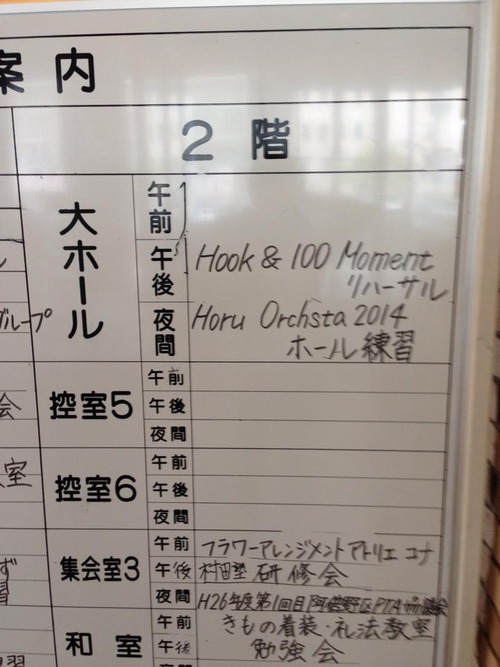 案内
2階
大ホール
午前
午後
Hook & 100 Moment
リハーサル
夜間
Horu Orchsta 2014
ホール練習
グループ
控室5
午前
午後
夜間
会
控室6
午前
午後
夜間
室
集会室3
午前
フラワーアレンジメントアトリエ コナ
午後
村田塾 研修会
夜間
H26年度第1回目 阿倍野区PTA
ず
習
和室
午前
きもの着装・礼法教室
午後
勉強会
習